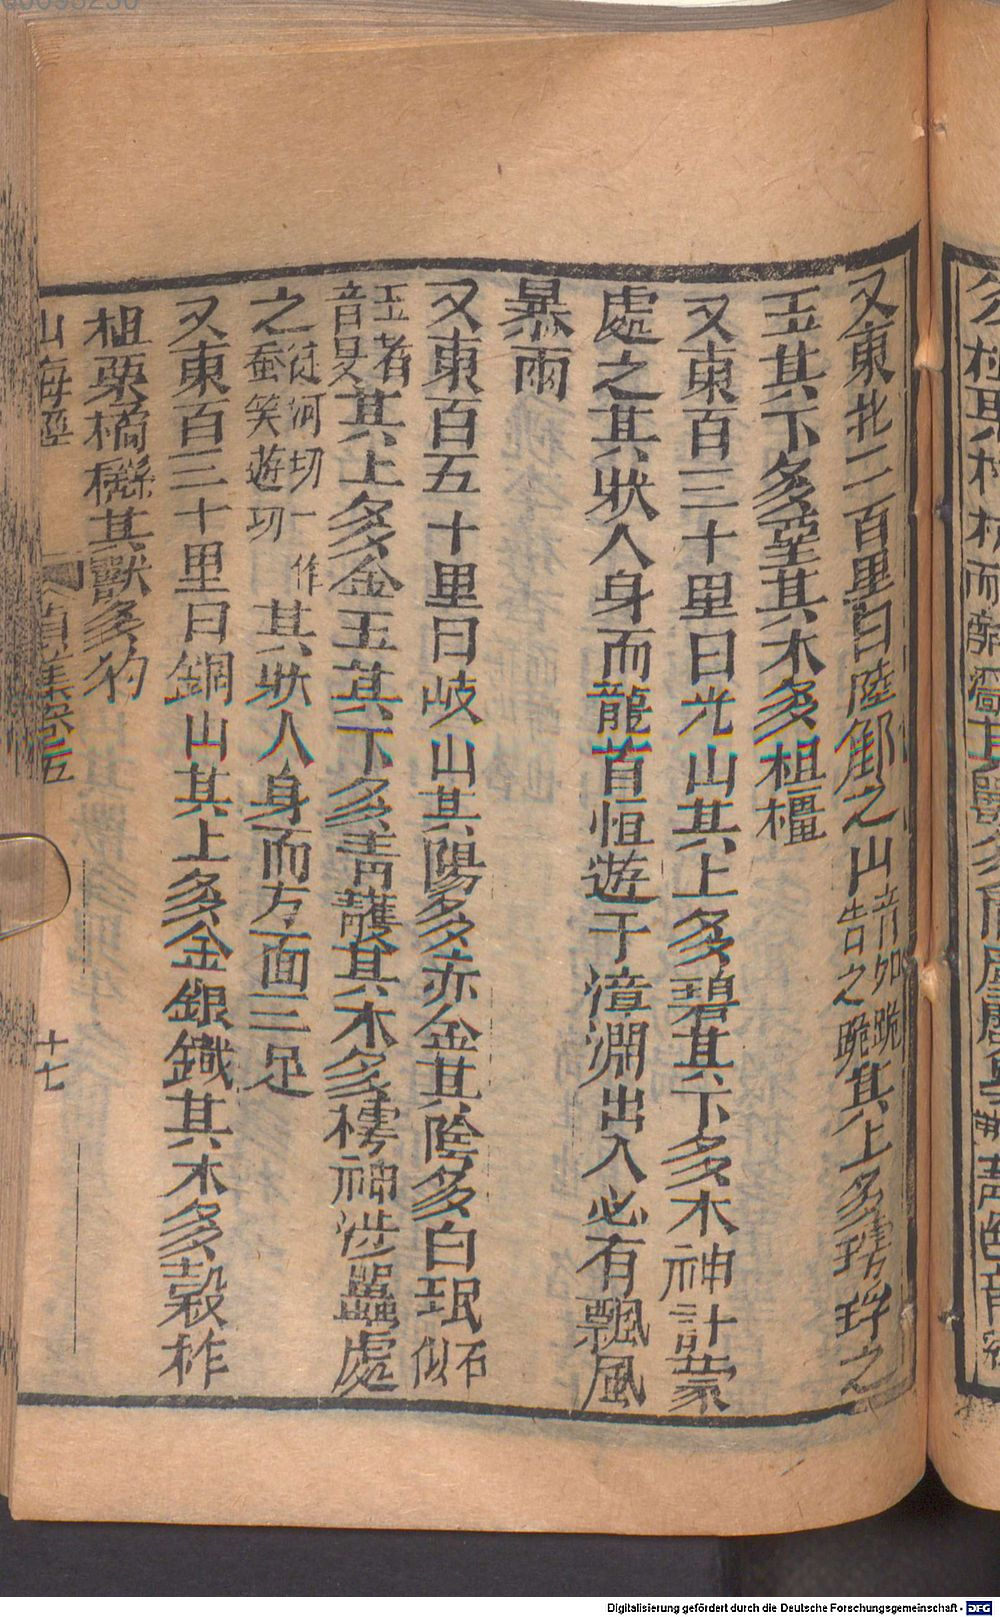 又東北二百里曰陸䣀之山音如跪告之跪其上多㻬琈之
玉其下多堊其木多杻橿
又東百三十里曰光山其上多碧其下多木神計蒙
處之其狀人身而龍首恒遊于漳淵出入必有飄風
暴雨
又東百五十里曰岐山其陽多赤金其陰多白珉石似
玉者音旻其上多金玉其下多青雘其木多樗神涉䰠處
之徒河切一作蚕笑遊切其狀人身而方面三足
又東百三十里曰銅山其上多金銀鐵其木多榖柞
柤栗橘櫾其獸多犳
山海經
卷五
十七
Digitalisierung gefördert durch die Deutsche Forschungsgemeinschaft - DFG